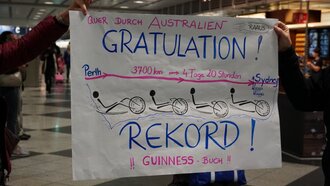 QUER DURCH AUSTRALIEN
GRATULATION !
Perth 3700 km → 4 Tage 20 Stunden Sydney
REKORD !
!! GUINNESS - BUCH !!